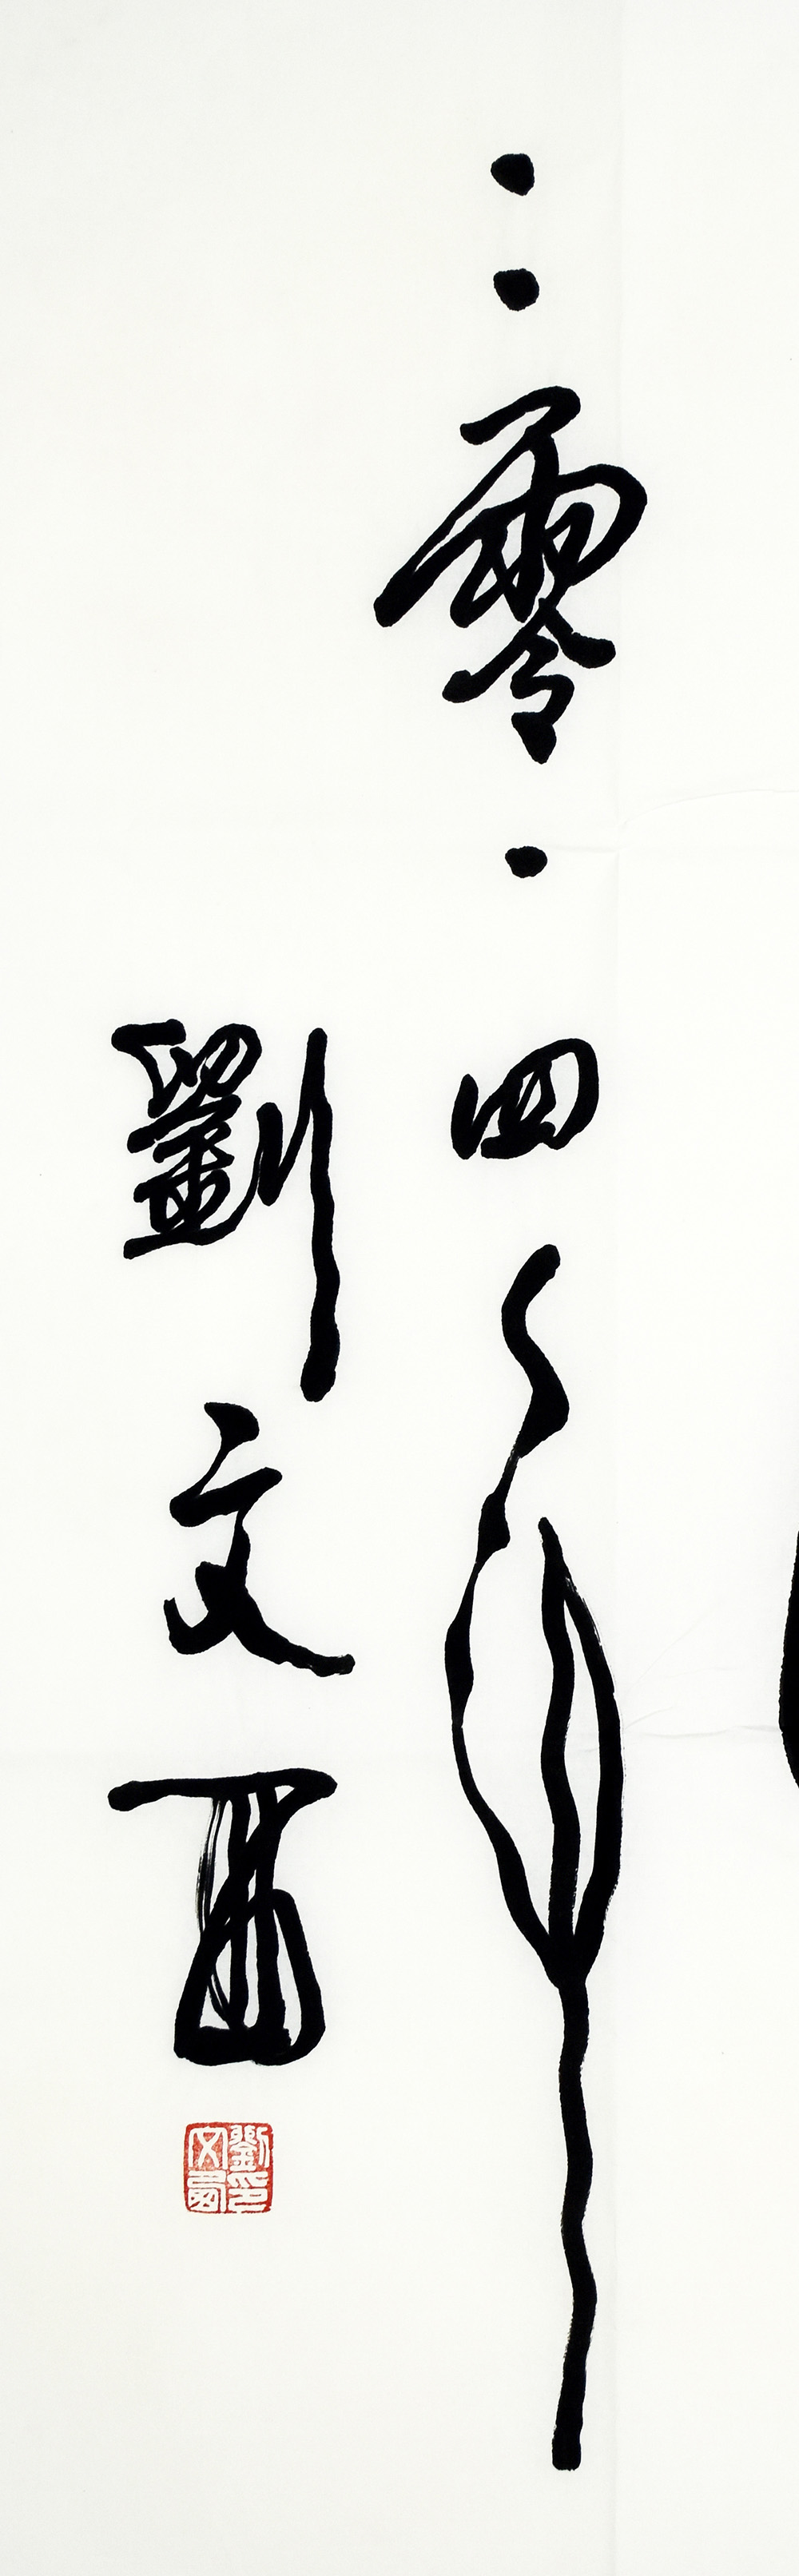 二零一四年
劉文西
劉印
文西